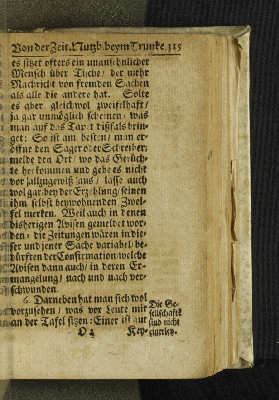 Von der Zeit. Nutzb. beym Trunke. 315
es sitzet offters ein unansehnlicher
Mensch über Tische/ der mehr
Nachricht von fremden Sachen
als alle die andere hat. Solte
es aber gleichwol zweiffelhafft/
ja gar unmüglich scheinen/ was
man auf das Tapet dißfals bringet:
So ist am besten/ man eröffne
den Sager oder Schreiber/
melde den Ort/ wo das Gerüchte
herkommen und gebe es nicht
vor allzugewiß aus/ lasse auch
wol gar bey der Erzehlung seinen
ihm selbst beywohnenden Zweifel
mercken. Weil auch in denen
bißherigen Avisen gemeldet worden/
die Zeitungen wären in dieser
und jener Sache variabel/ bedürfften
der Confirmation welche
Avisen dann auch/ in deren Ermangelung/
nach und nach verschwunden.
6. Darneben hat man sich wol
vorzusehen/ was vor Leute mit
an der Tafel sitzen: Einer ist gut
Die Gesellschafft
sind nicht
einerley.
O 4
Key-